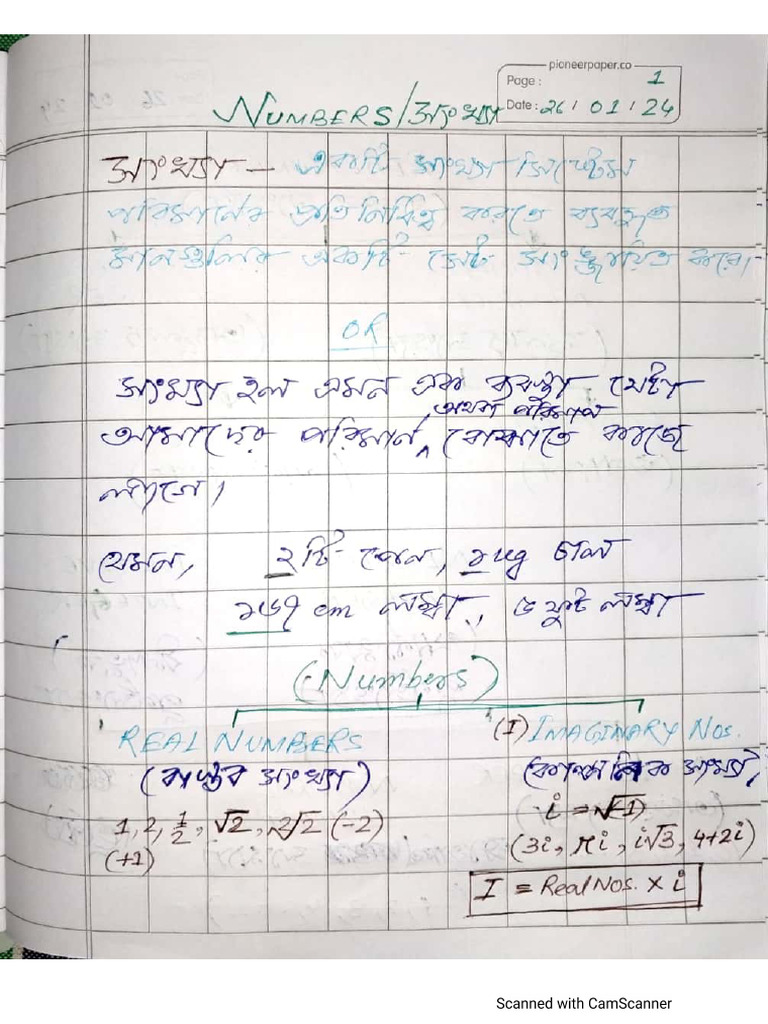 pioneerpaper.co
Page : 1
Date : 26 / 01 / 24
NUMBERS/সংখ্যা
সংখ্যা - একটি সংখ্যা সিস্টেম
পরিমানের প্রতিনিধিত্ব করতে ব্যবহৃত
মানগুলির একটি সেট সংজ্ঞায়িত করে।
OR
সংখ্যা হল এমন এক ব্যবস্থা যেটা
অথবা পরিমাপ
আমাদের পরিমান ^ বোঝাতে কাজে
লাগে।
যেমন, ২টি পেন, ১ kg চাল
১৬৭ cm লম্বা, ৫ ফুট লম্বা
(Numbers)
REAL NUMBERS (I) IMAGINARY NOS.
(বাস্তব সংখ্যা) (কাল্পনিক সংখ্যা)
1, 2, 1/2, √2, 2√2 (-2) i = √-1)
(+1) (3i, πi, i√3, 4+2i)
I = Real Nos. × i
Scanned with CamScanner